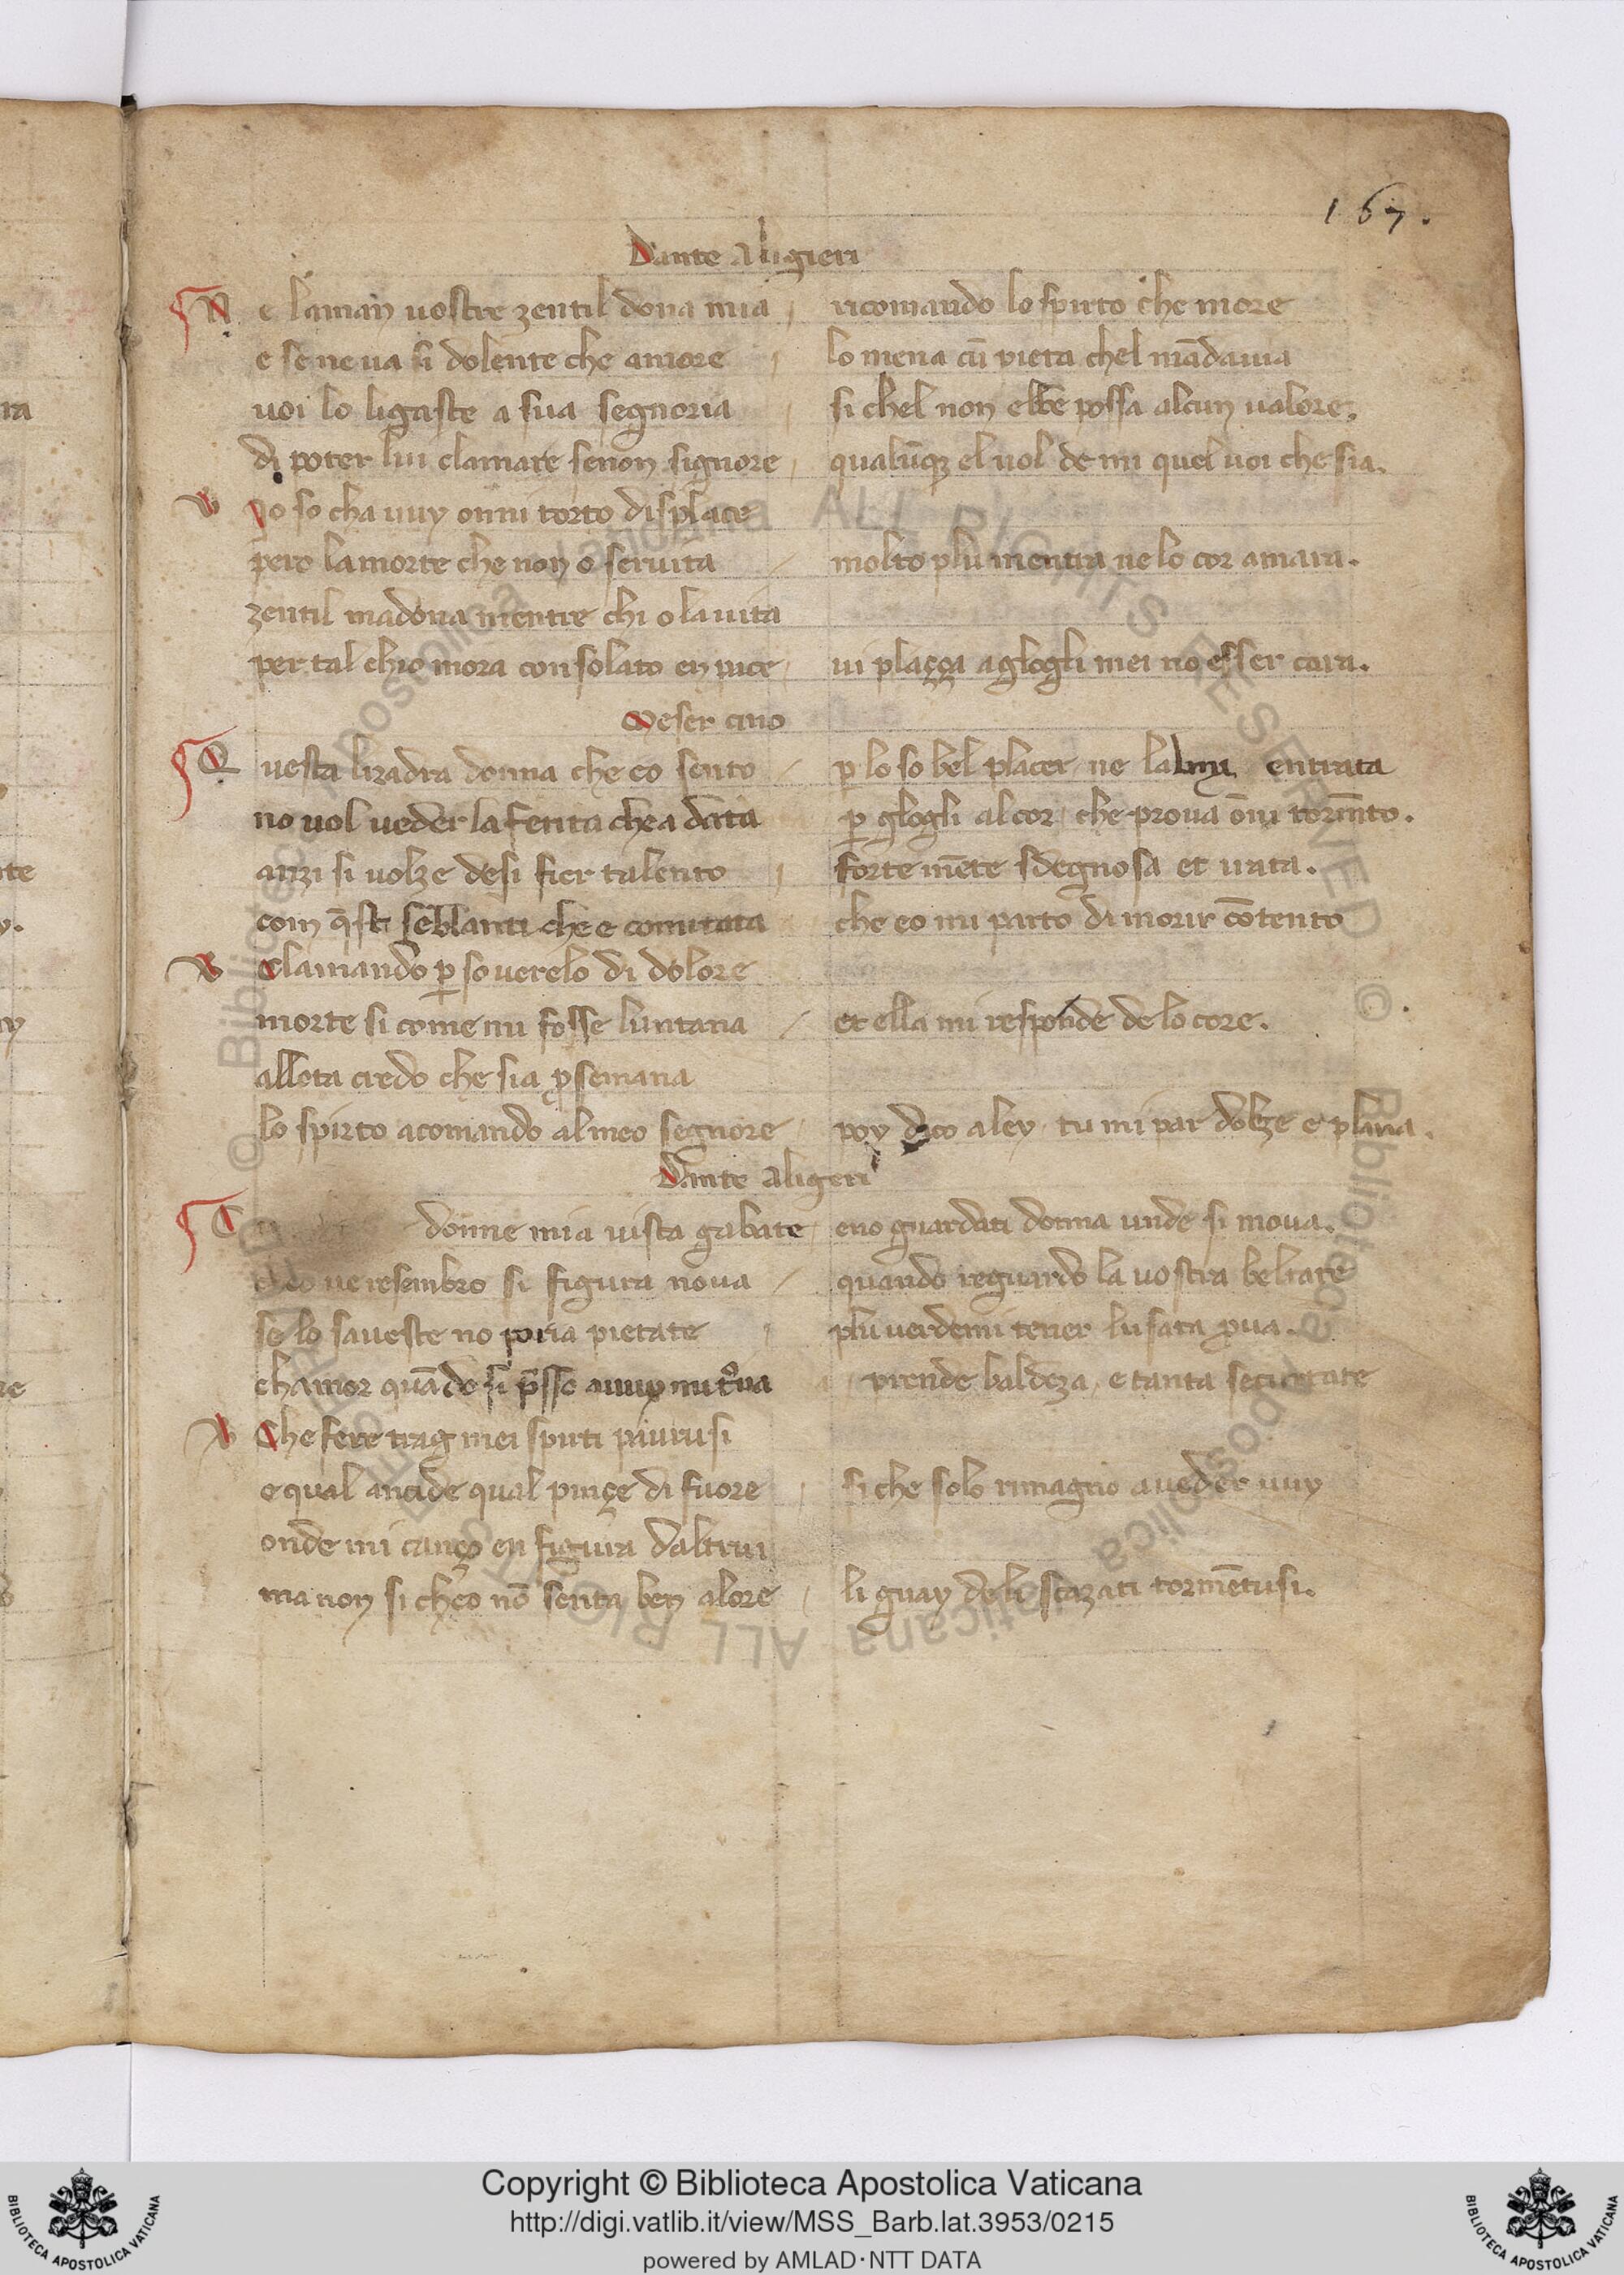 167.
Dante Aligieri
Ne laman uostre zentil dona mia / ricomando lo spirto che more
e se ne ua si dolente che amore / lo mena cū pieta chel mādauia
uoi lo ligaste a sua segnoria / si chel non ebbe possa alcun ualore.
di poter lui clamare senon signore / qualūqȝ el uol de mi quel uoi che sia.
Io so cha uuy onni torto displace
pero lamorte che non o seruita / molto plu mentra ne lo cor amara.
zentil madona mentre chi o la uita
per tal chio mora consolato en pace / ui plaçça aglogli mei no esser cara.
Meser cino
Questa lizadra donna che eo sento / ꝑ lo so bel placer ne lalma entrata
no uol ueder la ferita che a data / ꝑ glogli al cor che proua ōni tormēto.
anzi si uolze desi fier talento / forte mēte sdegnosa et irata.
com q̄sti sēblanti che e comutata / che eo mi parto di morir cōtento
Clamando ꝑ souerclo di dolore
morte si come mi fosse luntana / et ella mi responde de lo core.
allota credo che sia ꝓsemana
lo spirto acomando al meo segnore / poy dico a ley tu mi par dolze e plana.
Dante aligeri
C donne mia uista gabate / eno guardati donna unde si moua.
eo ue resembro si figura noua / quando reguardo la uostra beltate
se lo saueste no poria pietate / plu uerdemi tener lusata ꝓua.
chamor quādo si p̄sso auuy mi t°ua / prende baldeza, e tanta securetate
Che fere trag mei spirti paurusi
e qual ancide qual pinçe di fuore / si che solo rimagno aueder uuy
onde mi canço en figura daltrui
ma non si cheo nō senta ben alore / li guay deli scazati tormētusi.
Copyright © Biblioteca Apostolica Vaticana
http://digi.vatlib.it/view/MSS_Barb.lat.3953/0215
powered by AMLAD·NTT DATA